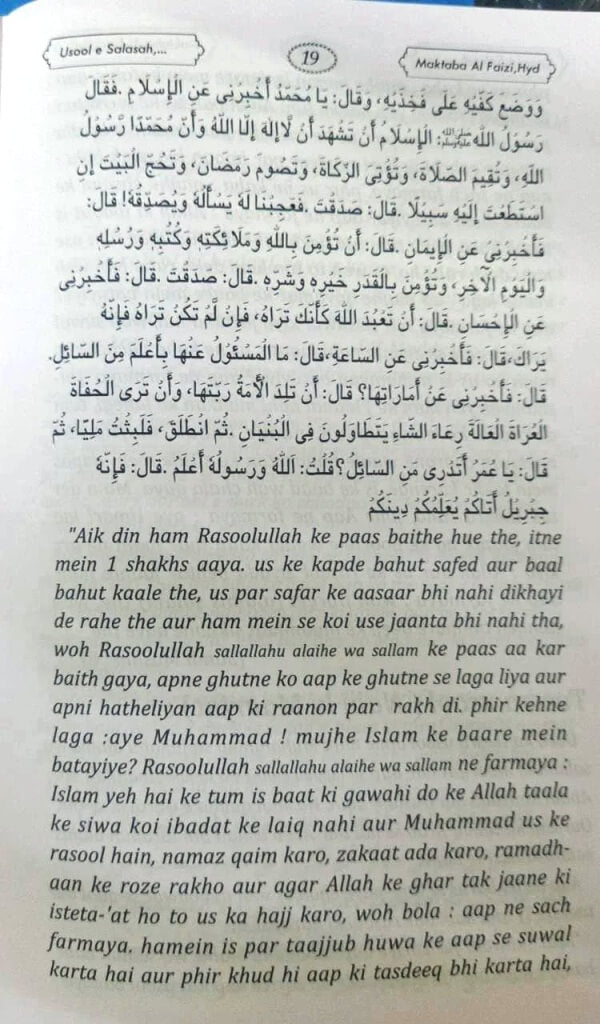 Usool e Salasah,...
19
Maktaba Al Faizi,Hyd
وَوَضَعَ كَفَّيْهِ عَلَى فَخِذَيْهِ، وَقَالَ: يَا مُحَمَّدُ أَخْبِرْنِى عَنِ الْإِسْلَامِ .فَقَالَ
رَسُوْلُ اللهِ ﷺ: الْإِسْلَامُ أَنْ تَشْهَدَ أَنْ لَّا إِلٰهَ إِلَّا اللهُ وَأَنَّ مُحَمَّدًا رَّسُوْلُ
اللهِ، وَتُقِيمَ الصَّلَاةَ، وَتُؤْتِىَ الزَّكَاةَ، وَتَصُومَ رَمَضَانَ، وَتَحُجَّ الْبَيْتَ إِنِ
اسْتَطَعْتَ إِلَيْهِ سَبِيْلًا .قَالَ: صَدَقْتَ .فَعَجِبْنَا لَهٗ يَسْأَلُهٗ وَيُصَدِّقُهٗ! قَالَ:
فَأَخْبِرْنِىْ عَنِ الْإِيمَانِ .قَالَ: أَنْ تُؤْمِنَ بِاللهِ وَمَلَائِكَتِهٖ وَكُتُبِهٖ وَرُسُلِهٖ
وَالْيَوْمِ الْآخِرِ، وَتُؤْمِنَ بِالْقَدَرِ خَيْرِهٖ وَشَرِّهٖ .قَالَ: صَدَقْتَ .قَالَ: فَأَخْبِرْنِى
عَنِ الْإِحْسَانِ .قَالَ: أَنْ تَعْبُدَ اللهَ كَأَنَّكَ تَرَاهُ، فَإِنْ لَّمْ تَكُنْ تَرَاهُ فَإِنَّهٗ
يَرَاكَ،قَالَ: فَأَخْبِرْنِى عَنِ السَّاعَةِ،قَالَ: مَا الْمَسْئُوْلُ عَنْهَا بِأَعْلَمَ مِنَ السَّائِلِ.
قَالَ: فَأَخْبِرْنِى عَنْ أَمَارَاتِهَا؟ قَالَ: أَنْ تَلِدَ الْأَمَةُ رَبَّتَهَا، وَأَنْ تَرَى الْحُفَاةَ
الْعُرَاةَ الْعَالَةَ رِعَاءَ الشَّاءِ يَتَطَاوَلُونَ فِى الْبُنْيَانِ .ثُمَّ انْطَلَقَ، فَلَبِثْتُ مَلِيًّا، ثُمَّ
قَالَ: يَا عُمَرُ أَتَدْرِى مَنِ السَّائِلُ؟قُلْتُ: اَللهُ وَرَسُولُهٗ أَعْلَمُ .قَالَ: فَإِنَّهٗ
جِبْرِيْلُ أَتَاكُمْ يُعَلِّمُكُمْ دِينَكُمْ
"Aik din ham Rasoolullah ke paas baithe hue the, itne
mein 1 shakhs aaya. us ke kapde bahut safed aur baal
bahut kaale the, us par safar ke aasaar bhi nahi dikhayi
de rahe the aur ham mein se koi use jaanta bhi nahi tha,
woh Rasoolullah sallallahu alaihe wa sallam ke paas aa kar
baith gaya, apne ghutne ko aap ke ghutne se laga liya aur
apni hatheliyan aap ki raanon par rakh di. phir kehne
laga :aye Muhammad ! mujhe Islam ke baare mein
batayiye? Rasoolullah sallallahu alaihe wa sallam ne farmaya :
Islam yeh hai ke tum is baat ki gawahi do ke Allah taala
ke siwa koi ibadat ke laiq nahi aur Muhammad us ke
rasool hain, namaz qaim karo, zakaat ada karo, ramadh-
aan ke roze rakho aur agar Allah ke ghar tak jaane ki
isteta-'at ho to us ka hajj karo, woh bola : aap ne sach
farmaya. hamein is par taajjub huwa ke aap se suwal
karta hai aur phir khud hi aap ki tasdeeq bhi karta hai,